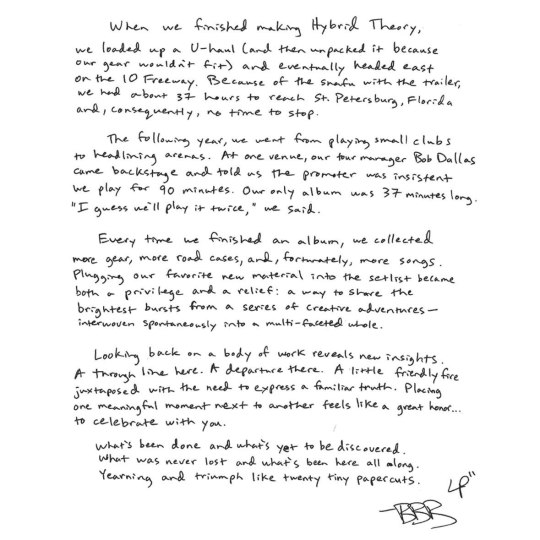 When we finished making Hybrid Theory,
we loaded up a U-haul (and then unpacked it because
our gear wouldn't fit) and eventually headed east
on the 10 Freeway. Because of the snafu with the trailer,
we had about 37 hours to reach St. Petersburg, Florida
and, consequently, no time to stop.
The following year, we went from playing small clubs
to headlining arenas. At one venue, our tour manager Bob Dallas
came backstage and told us the promoter was insistent
we play for 90 minutes. Our only album was 37 minutes long.
"I guess we'll play it twice," we said.
Every time we finished an album, we collected
more gear, more road cases, and, fortunately, more songs.
Plugging our favorite new material into the setlist became
both a privilege and a relief: a way to share the
brightest bursts from a series of creative adventures—
interwoven spontaneously into a multi-faceted whole.
Looking back on a body of work reveals new insights.
A through line here. A departure there. A little friendly fire
juxtaposed with the need to express a familiar truth. Placing
one meaningful moment next to another feels like a great honor...
to celebrate with you.
What's been done and what's yet to be discovered.
What was never lost and what's been here all along.
Yearning and triumph like twenty tiny papercuts.
BBB